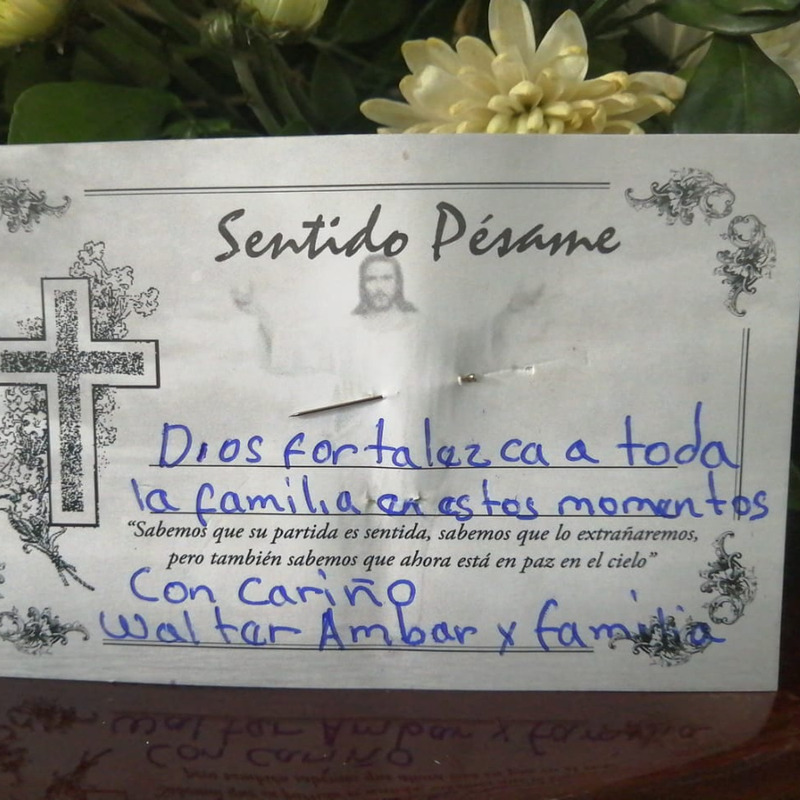 Sentido Pésame
Dios fortalezca a toda
la familia en estos momentos
“Sabemos que su partida es sentida, sabemos que lo extrañaremos,
pero también sabemos que ahora está en paz en el cielo”
Con cariño
Walter Ambar x familia